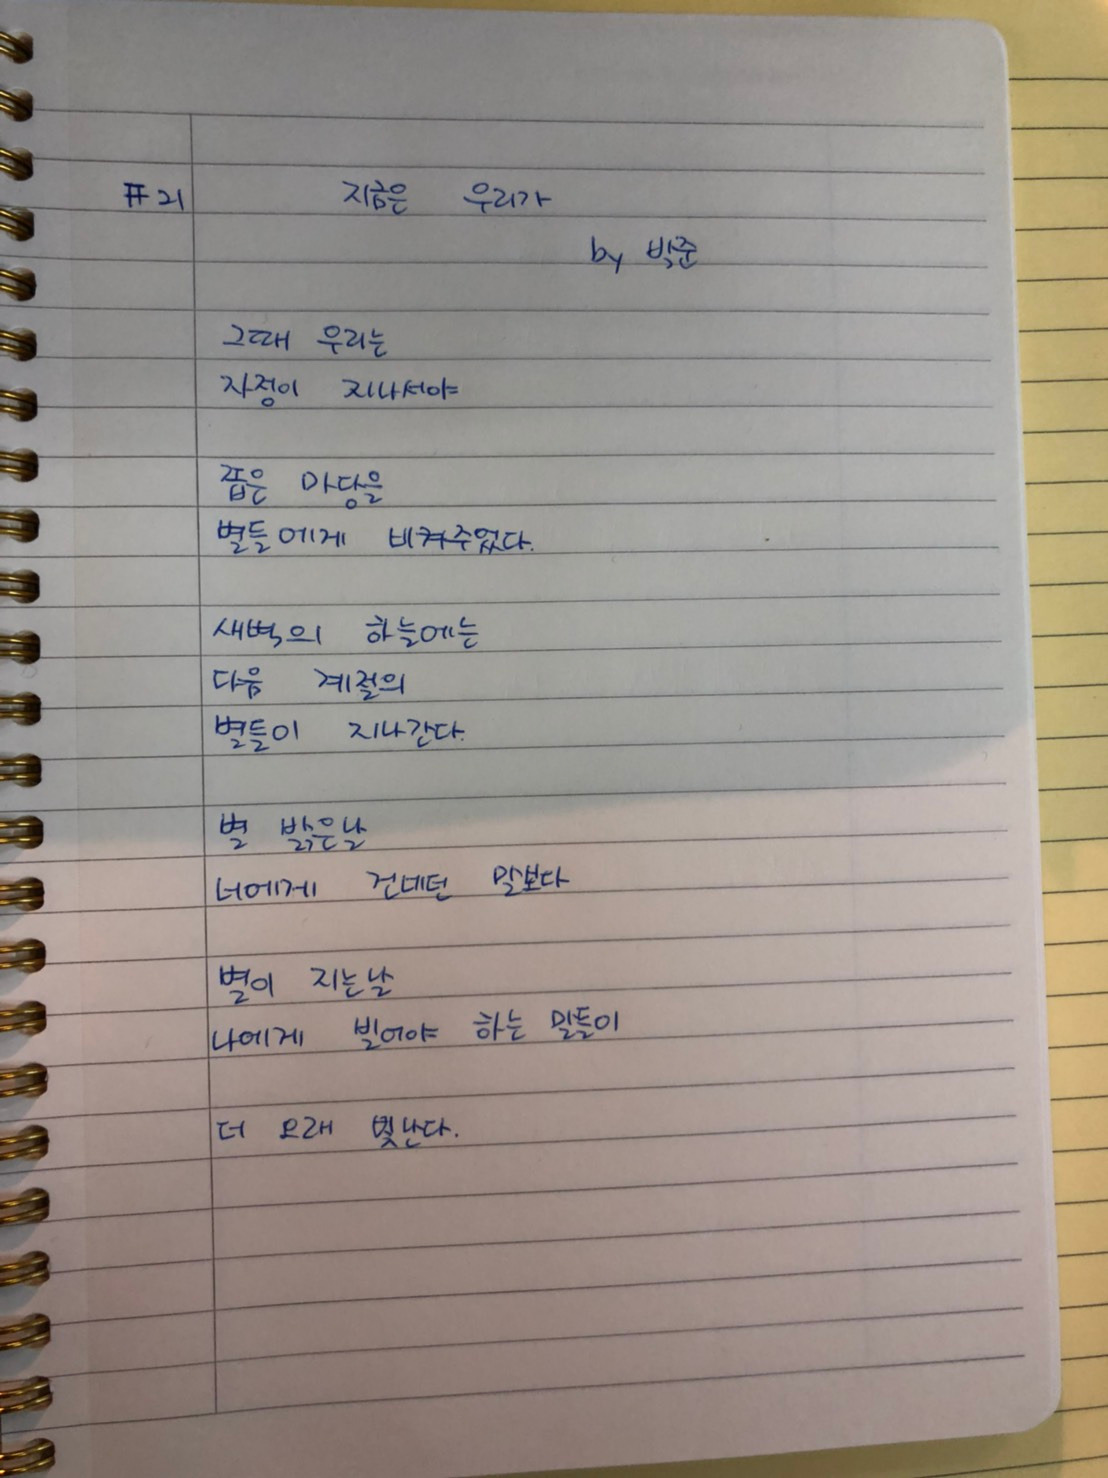 #21 지금은 우리가
by 박준
그때 우리는
자정이 지나서야
좁은 마당을
별들에게 비켜주었다.
새벽의 하늘에는
다음 계절의
별들이 지나간다.
별 밝은날
너에게 건네던 말보다
별이 지는날
나에게 빌어야 하는 말들이
더 오래 빛난다.